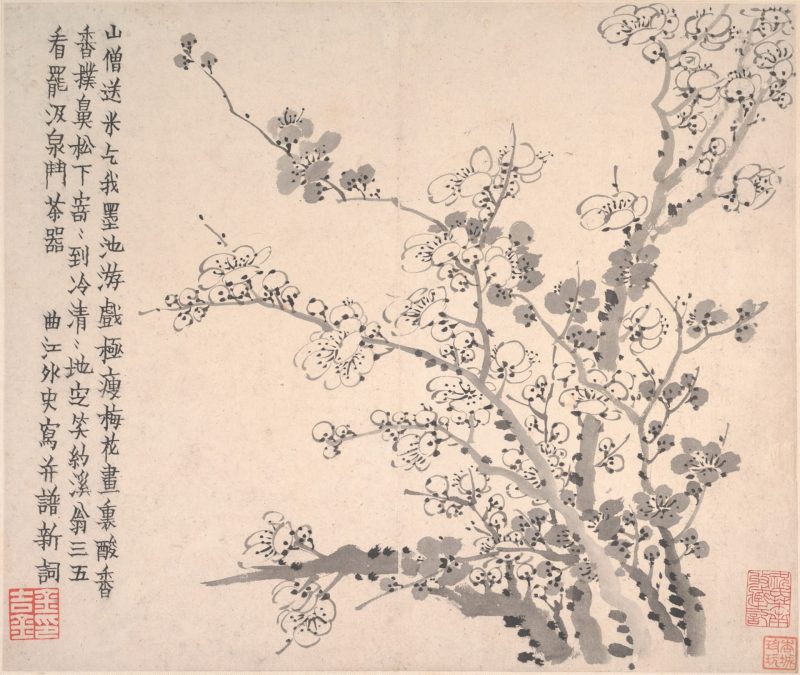 山僧送米乞我墨池游戲極瘦梅花畫裏酸香
香撲鼻松下寄〻到冷清〻地定笑約溪翁三五
看罷汲泉鬥茶器 曲江外史寫并譜新詞
金吉金印